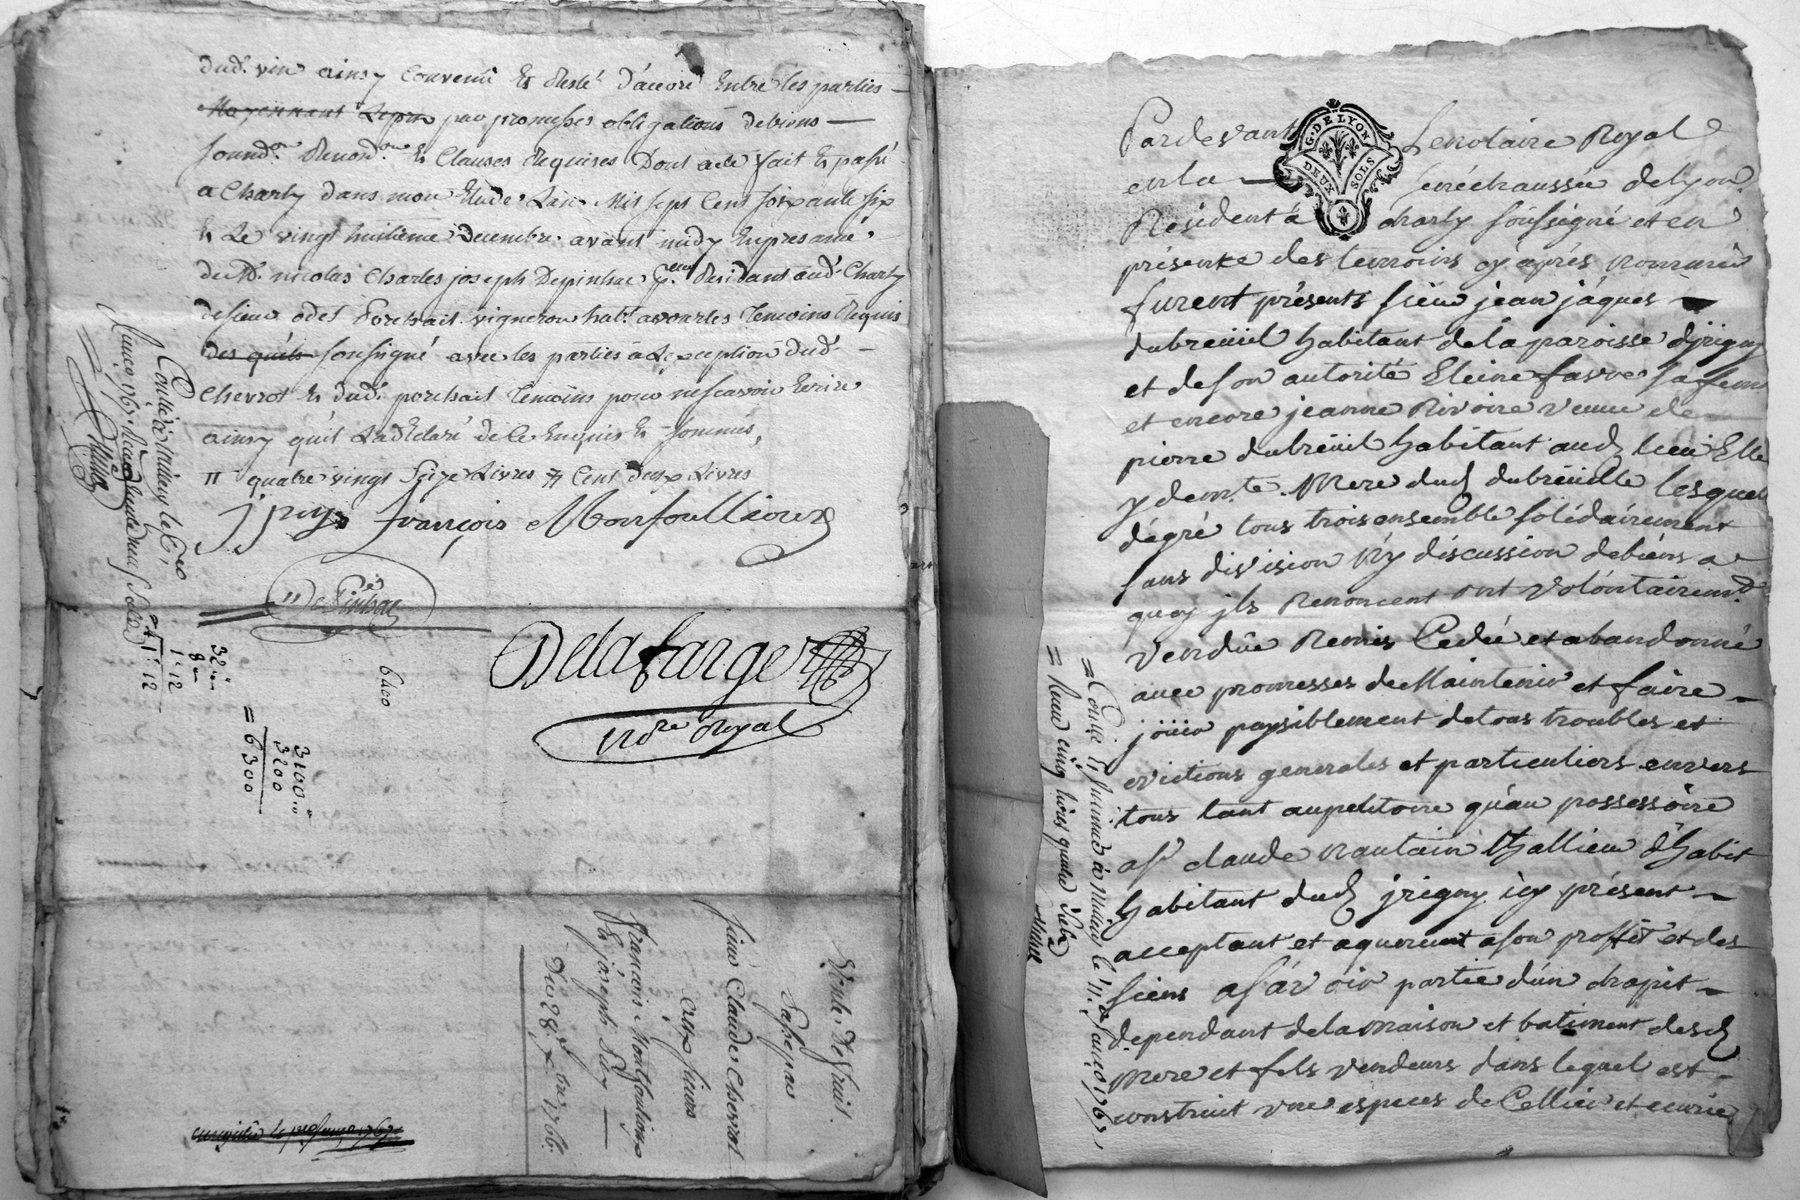 dud. vin ainsy convenu & resté d'accord entre les parties
Moyennant Lepn par promesses obligations de biens
soumd.on Renond.on & Clauses Requises Dont acte fait & passé
a Charly dans mon Etude Lan Mil sept Cent soixante six
& Le vingt huitième Decembre avant midy En presence
du Sr. nicolas Charles joseph Depinhac Residant aud. Charly
de sieur odet Porchait vigneron habt. a vourles Temoins Requis
des quels soussigné avec les parties à L'exception dud.
Chevrot & dud. porchait Temoins pour ne scavoir Ecrire
ainsy qu'il La Déclaré de ce Enquis & sommés,
quatre vingt seize Livres Cent deux Livres
j puy François Montfoullioux
DePinhac
Delafarge
no.re Royal
Conllé à
Reçu
6400
32
8
1 : 12
1 : 12
3100
3200
6300
Vente De fruit
Passé par
sieur Claude Chevrot
aux sieurs
François Montfoulioux
& joseph Puy
Du 28 Xbre 1766.
Par devant Le notaire Royal
G. DE LYON
DEUX SOLS
en la senéchaussée de Lyon
Résident à charly soussigné et en
présence des temoins cy après nommés
furent présents sieur jean jâques
dubreüil habitant de la paroisse d'jrigny
et de son autorité Eleine favre sa fem
et encore jeanne Rivoire veuve de
pierre dubreüil habitant aud. lieu Elle
y demte. Mere dud. dubreüille lesquels
dégré tous trois ensemble solidairement
sans division n'y discussion de biens a
quoy jls Renoncent ont volontairemt.
vendüe Remis Cedée et abandonné
avec promesses de Maintenir et faire
joüir paysiblement de tous troubles et
evictions generales et particuliers envers
tous tant au petitoire qu'au possessoire
a sr claude nantain Thallieu
habitant dud. jrigny icy présent
acceptant et aquereur a son proffit et des
siens asavoir partie d'un chapit
dependant de la maison et batiment desd.
Mere et fils vendeurs dans lequel est
construit vne especes de Cellier et ecurie